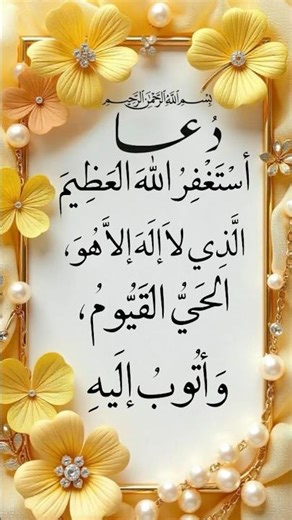 بِسْمِ اللهِ الرَّحْمٰنِ الرَّحِيمِ
دُعا
أسْتَغْفِرُ اللهَ العَظِيمَ
الَّذِي لاَ إلَهَ إلاَّ هُوَ،
الحَيُّ القَيُّومُ،
وَأتُوبُ إلَيهِ